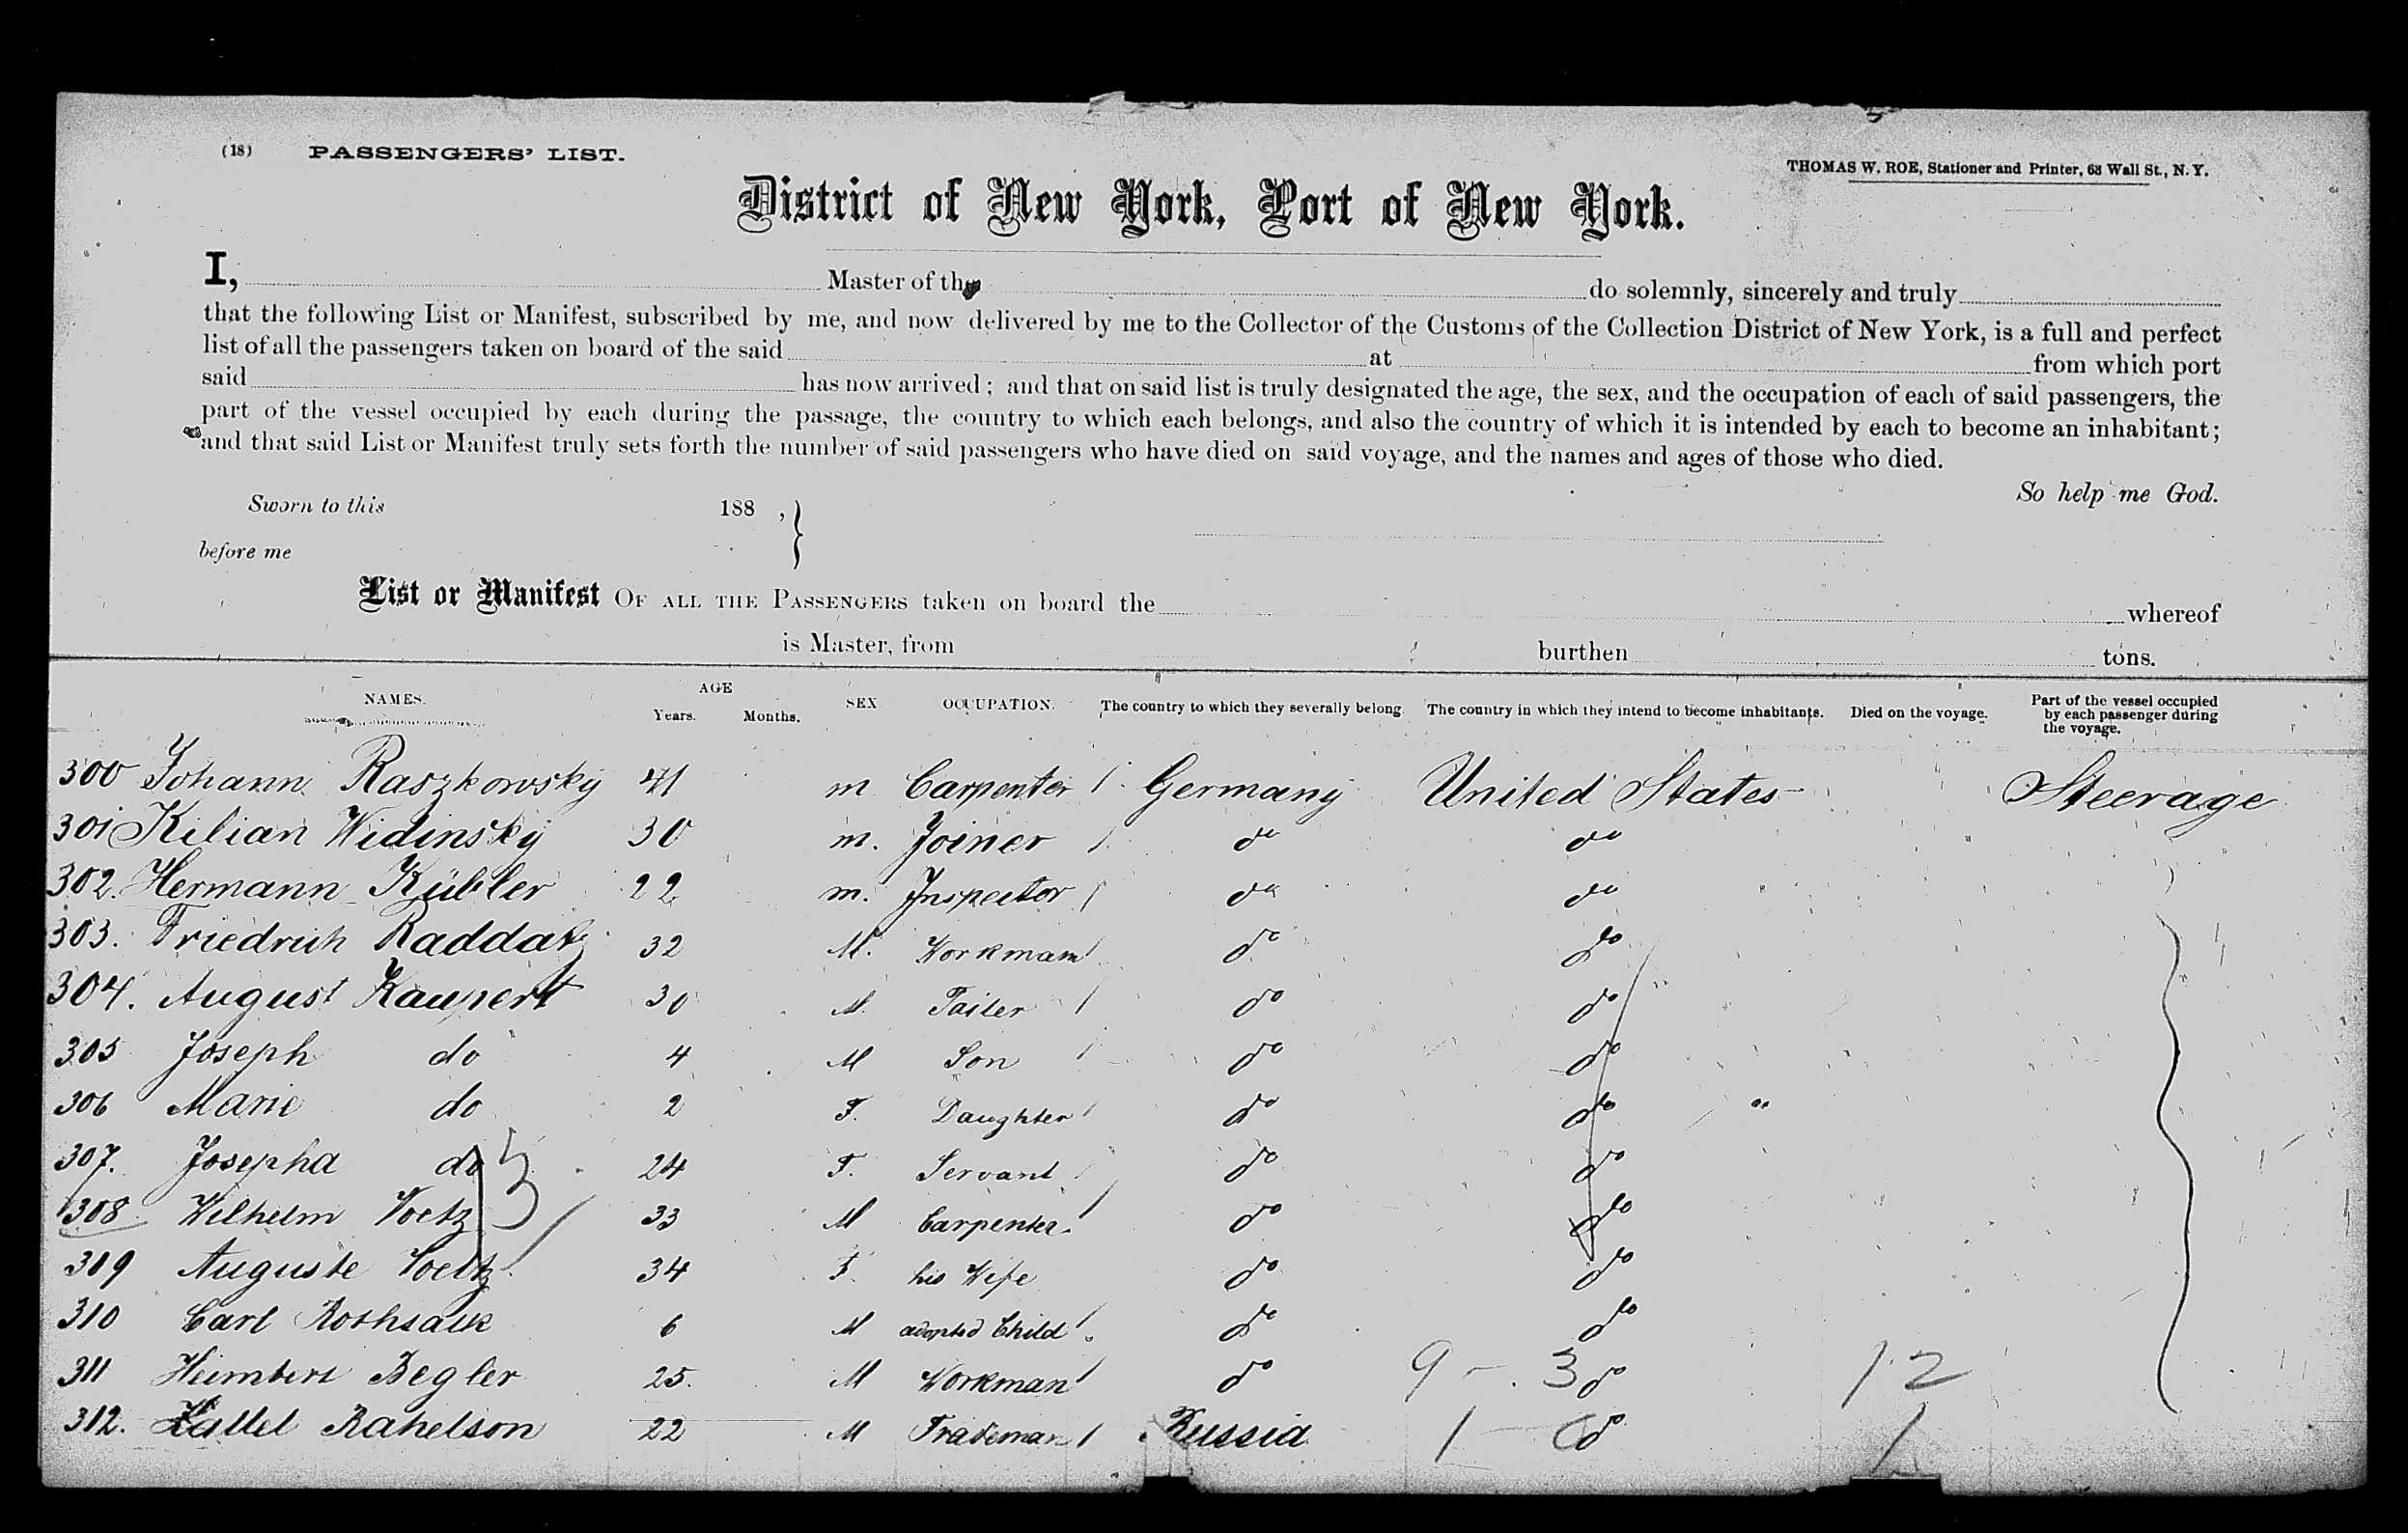 (18) PASSENGERS' LIST.
THOMAS W. ROE, Stationer and Printer, 68 Wall St., N. Y.
District of New York, Port of New York.
I, Master of the do solemnly, sincerely and truly
that the following List or Manifest, subscribed by me, and now delivered by me to the Collector of the Customs of the Collection District of New York, is a full and perfect
list of all the passengers taken on board of the said at from which port
said has now arrived; and that on said list is truly designated the age, the sex, and the occupation of each of said passengers, the
part of the vessel occupied by each during the passage, the country to which each belongs, and also the country of which it is intended by each to become an inhabitant;
and that said List or Manifest truly sets forth the number of said passengers who have died on said voyage, and the names and ages of those who died.
So help me God.
Sworn to this 188 ,
before me
List or Manifest OF ALL THE PASSENGERS taken on board the whereof
is Master, from burthen tons.
NAMES. AGE Years. Months. SEX OCCUPATION. The country to which they severally belong The country in which they intend to become inhabitants. Died on the voyage. Part of the vessel occupied by each passenger during the voyage.
300 Johann Raszkowsky 41 m Carpenter Germany United States Steerage
301 Kilian Widinsky 30 m. Joiner do do
302. Hermann Kübler 22 m. Inspector do do
303. Friedrich Raddatz 32 M. Workmam do do
304. August Kaupert 30 M. Tailer do do
305 Joseph do 4 M Son do do
306 Marie do 2 F. Daughter do do
307. Josepha do 24 F. Servant do do
308 Wilhelm Voetz 33 M Carpenter. do do
309 Auguste Voetz 34 F. his Wife do do
310 Carl 6 M adopted Child do do
311 Heimbert Begler 25. M Workman do 9 - 3 do 12
312. Rahelson 22 M Trademan Russia 1 - 0 do 1